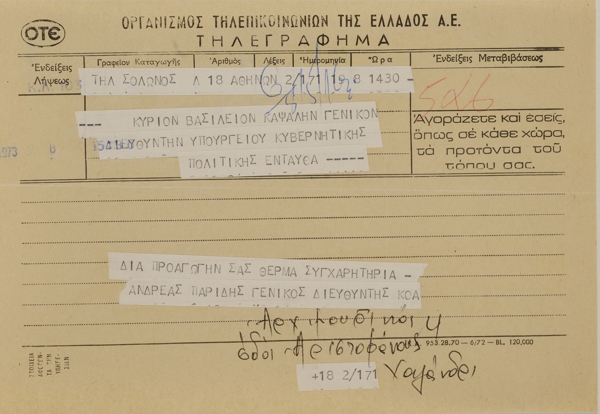 ΟΤΕ
ΟΡΓΑΝΙΣΜΟΣ ΤΗΛΕΠΙΚΟΙΝΩΝΙΩΝ ΤΗΣ ΕΛΛΑΔΟΣ Α.Ε.
ΤΗΛΕΓΡΑΦΗΜΑ
Ἐνδείξεις Λήψεως
Γραφεῖον Καταγωγῆς
Ἀριθμὸς
Λέξεις
Ἡμερομηνία
Ὥρα
Ἐνδείξεις Μεταβιβάσεως
ΤΗΛ ΣΟΛΩΝΟΣ Λ 18 ΑΘΗΝΩΝ 2/171 19 8 1430 -
---- ΚΥΡΙΟΝ ΒΑΣΙΛΕΙΟΝ ΚΑΨΑΛΗΝ ΓΕΝΙΚΟΝ
ΔΙΕΥΘΥΝΤΗΝ ΥΠΟΥΡΓΕΙΟΥ ΚΥΒΕΡΝΗΤΙΚΗΣ
ΠΟΛΙΤΙΚΗΣ ΕΝΤΑΥΘΑ -----
1973
Ἀγοράζετε καὶ ἐσεῖς,
ὅπως σὲ κάθε χώρα,
τὰ προϊόντα τοῦ
τόπου σας.
ΔΙΑ ΠΡΟΑΓΩΓΗΝ ΣΑΣ ΘΕΡΜΑ ΣΥΓΧΑΡΗΤΗΡΙΑ -
ΑΝΔΡΕΑΣ ΠΑΡΙΔΗΣ ΓΕΝΙΚΟΣ ΔΙΕΥΘΥΝΤΗΣ ΚΟΑ
ὁδὸς Ἀριστοφάνους
Χαλάνδρι
953 28.70 - 6/72 - BL. 120,000
+18 2/171